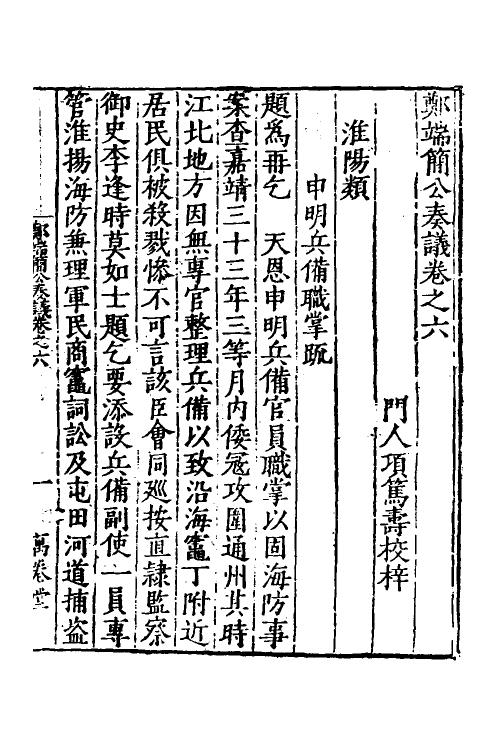 鄭端簡公奏議卷之六
門人項篤壽校梓
淮陽類
申明兵備職掌疏
題爲冊乞　天恩申明兵備官員職掌以固海防事
案查嘉靖三十三年三等月內倭寇攻圍通州其時
江北地方因無專官整理兵備以致沿海竈丁附近
居民俱被殺戮慘不可言該臣會同廵按直隷監察
御史李逢時莫如士題乞要添設兵備副使一員專
管淮揚海防兼理軍民商竈詞訟及屯田河道捕盗
鄭端簡公奏議卷之六
一
萬卷堂